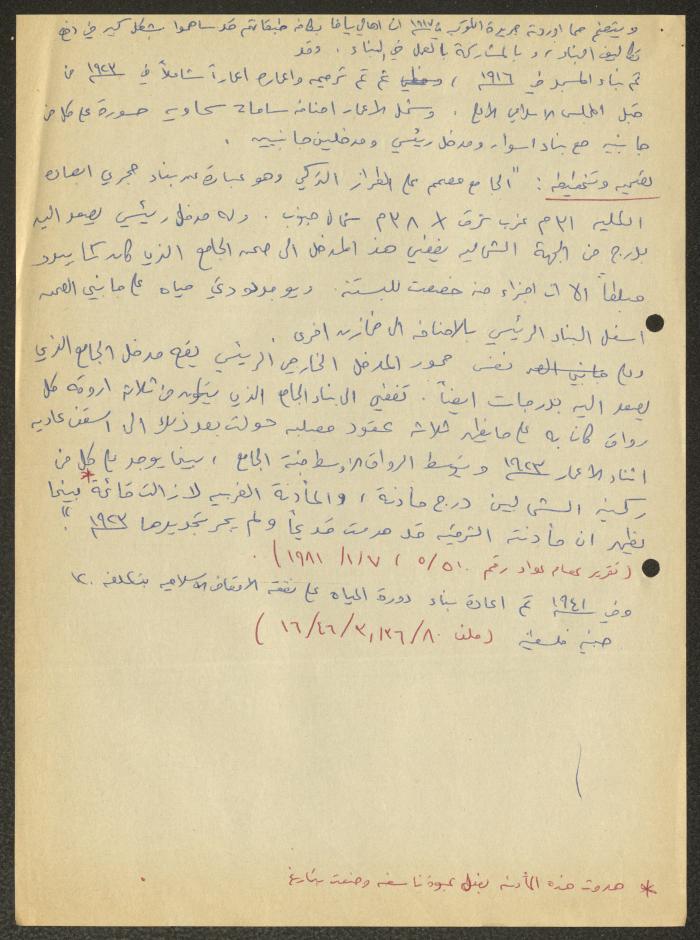 ويتضح مما اوردته جريدة الكوكب في ١٩١٧ ان اهالي يافا بكافة طبقاتهم قد ساهموا بشكل كبير في دفع
تكاليف البناء، وبالمشاركة بالعمل في البناء. وقد
تم بناء المسجد في ١٩١٦، ثم تم ترميمه واعماره اعماراً شاملاً في ١٩٢٣ من
قبل المجلس الاسلامي الاعلى. وشمل الاعمار اضافة ساحات سماويه مسورة على كل من
جانبيه مع بناء اسوار ومدخل رئيسي ومدخلين جانبيين.
تصميمه وتخطيطه: "الجامع مصمم على الطراز التركي وهو عبارة عن بناء حجري ابعاده
الكليه ٣١م غرب شرق × ٣٨م شمال جنوب. وله مدخل رئيسي يصعد اليه
بدرج من الجهة الشماليه يفضي هذا المدخل الى صحن الجامع الذي كان كما يبدو
مبلطاً الا ان اجزاء منه خصصت للبستنة. ويوجد على جانبي الصحن
اسفل البناء الرئيسي بالاضافه الى مخازن اخرى.
وعلى نفس محور المدخل الخارجي الرئيسي يقع مدخل الجامع الذي
يصعد اليه بدرجات ايضاً. تفضي الى بناء الجامع الذي يتكون من ثلاثة اروقة كل
رواق كان به على ما يظهر ثلاثة عقود مصلبه حولت بعد ذلك الى اسقف عاديه
اثناء الاعمار ١٩٢٣ ويتوسط الرواق الاوسط قبة الجامع، بينما يوجد على كل من
ركنيه الشماليين درج مأذنة، والمأذنة الغربيه لا زالت قائمة* بينما
يظهر ان مأذنته الشرقيه قد هدمت قديماً ولم يجر تجديدها ١٩٢٣".
(تقرير عصام عواد رقم ٥/٥١٠، ١٩٨١/١/٧).
وفي ١٩٤١ تم اعادة بناء دورة المياه على نفقة الاوقاف الاسلاميه بتكلفه ١٢٠
جنيه فلسطيني (ملف ١٦/٤٦/٣,١٣٦/٨٠)
* هدمت هذه المأذنه بفعل عبوة ناسفه وضعت بتاريخ